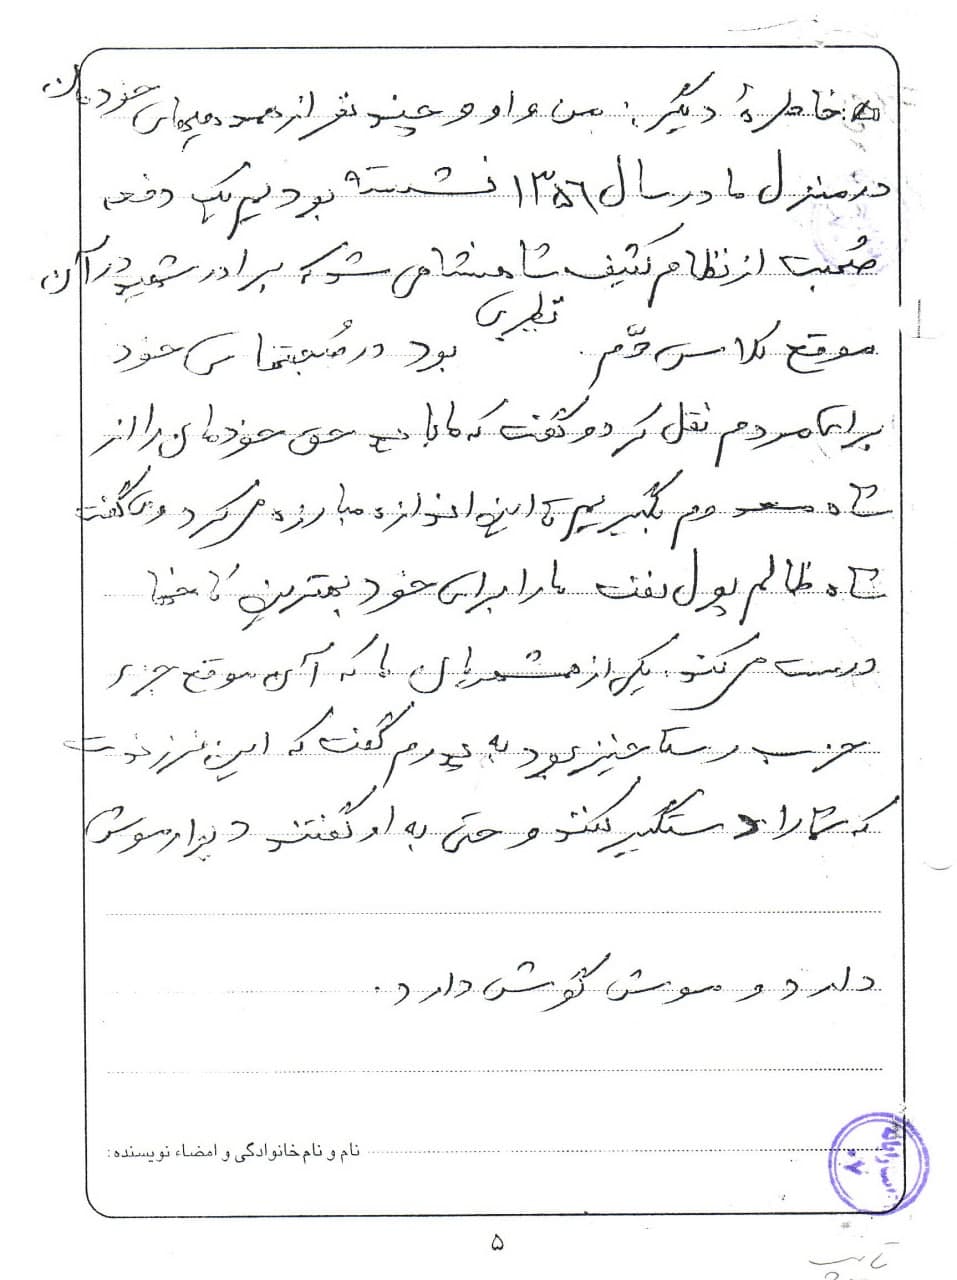 خاطرهٔ دیگر: من و او و چند نفر از هم دهیهای خودمان
در منزل ما در سال ۱۳۵۶ نشسته بودیم یک دفعه
صُحبت از نظام کثیف شاهنشاهی شد که برادر شهید در آن
موقع کلاس دوّم نظری بود در صُحبتهای خود
برای مردم نقل کرد و گفت که ما باید حق خودمان را از
شاه معدوم بگیریم تا این اندازه مبارزه می کرد و می گفت
شاه ظالم پول نفت ما را برای خود بهترین کاخها
درست می کند. یکی از همشهریان ما که آن موقع جزء
حزب رستاخیز بود به پدرم گفت که این فرزندت
که شما را دستگیر نکنند و حتی به او گفتند دیوار موش
دارد و موش گوش دارد.
نام و نام خانوادگی و امضاء نویسنده:
۵